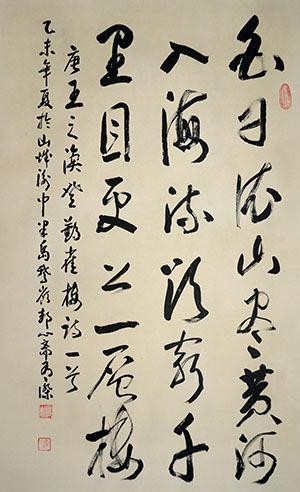 白日依山尽黄河
入海流欲穷千
里目更上一层楼
唐王之涣登鹳雀楼诗一首
乙未年夏于山城渝中半岛